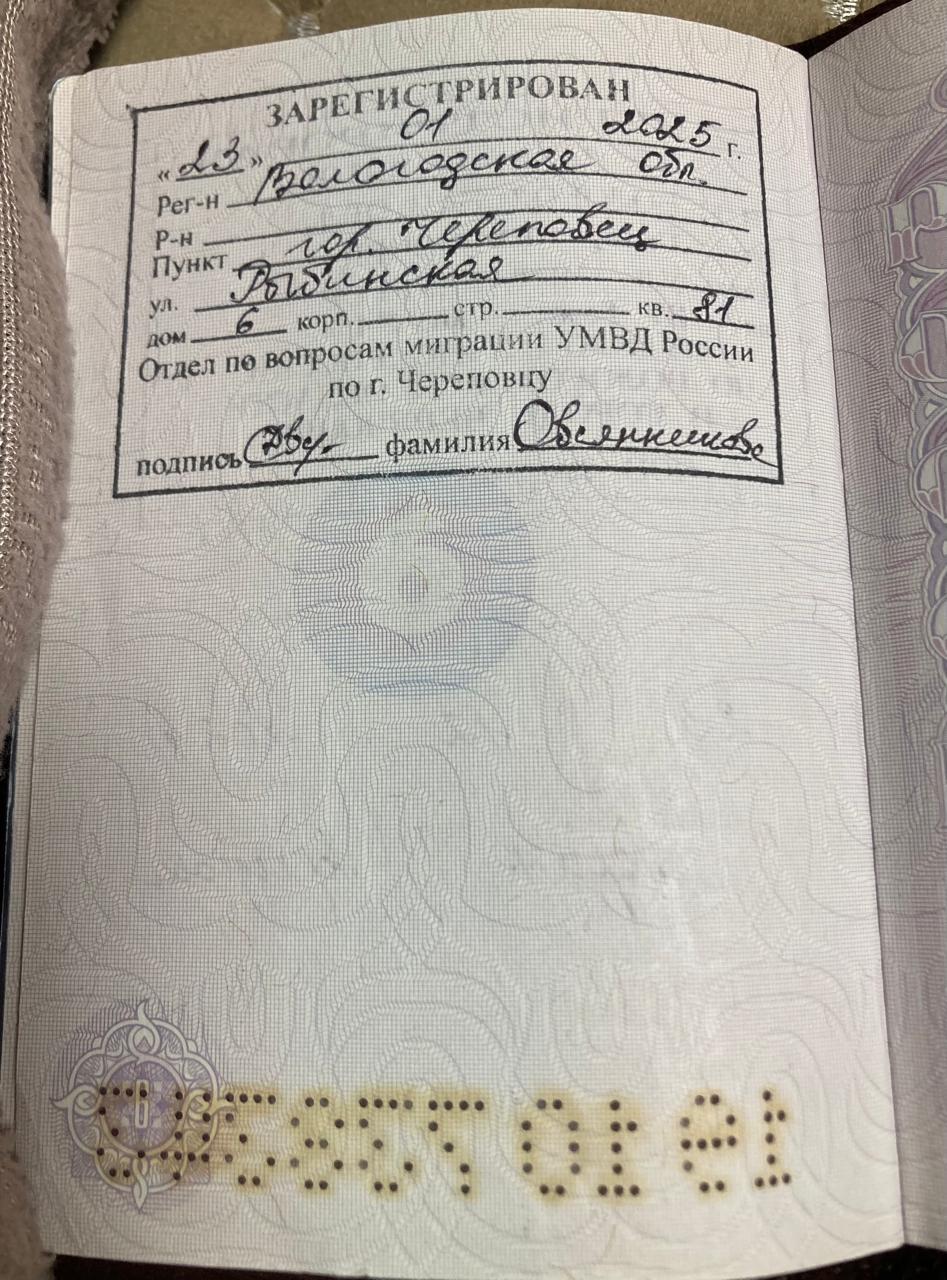 ЗАРЕГИСТРИРОВАН
«23» 01 2025 г.
Рег-н Вологодская обл.
Р-н
Пункт гор. Череповец
ул. Рыбинская
дом 6 корп. стр. кв. 81
Отдел по вопросам миграции УМВД России
по г. Череповцу
подпись фамилия Овсянникова
6